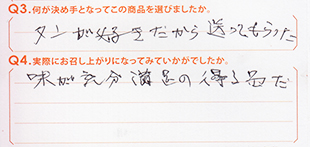 Q3.何が決め手となってこの商品を選びましたか。
タンが好きだから送ってもらった
Q4.実際にお召し上がりになってみていかがでしたか。
味が充分満足の得る品だ